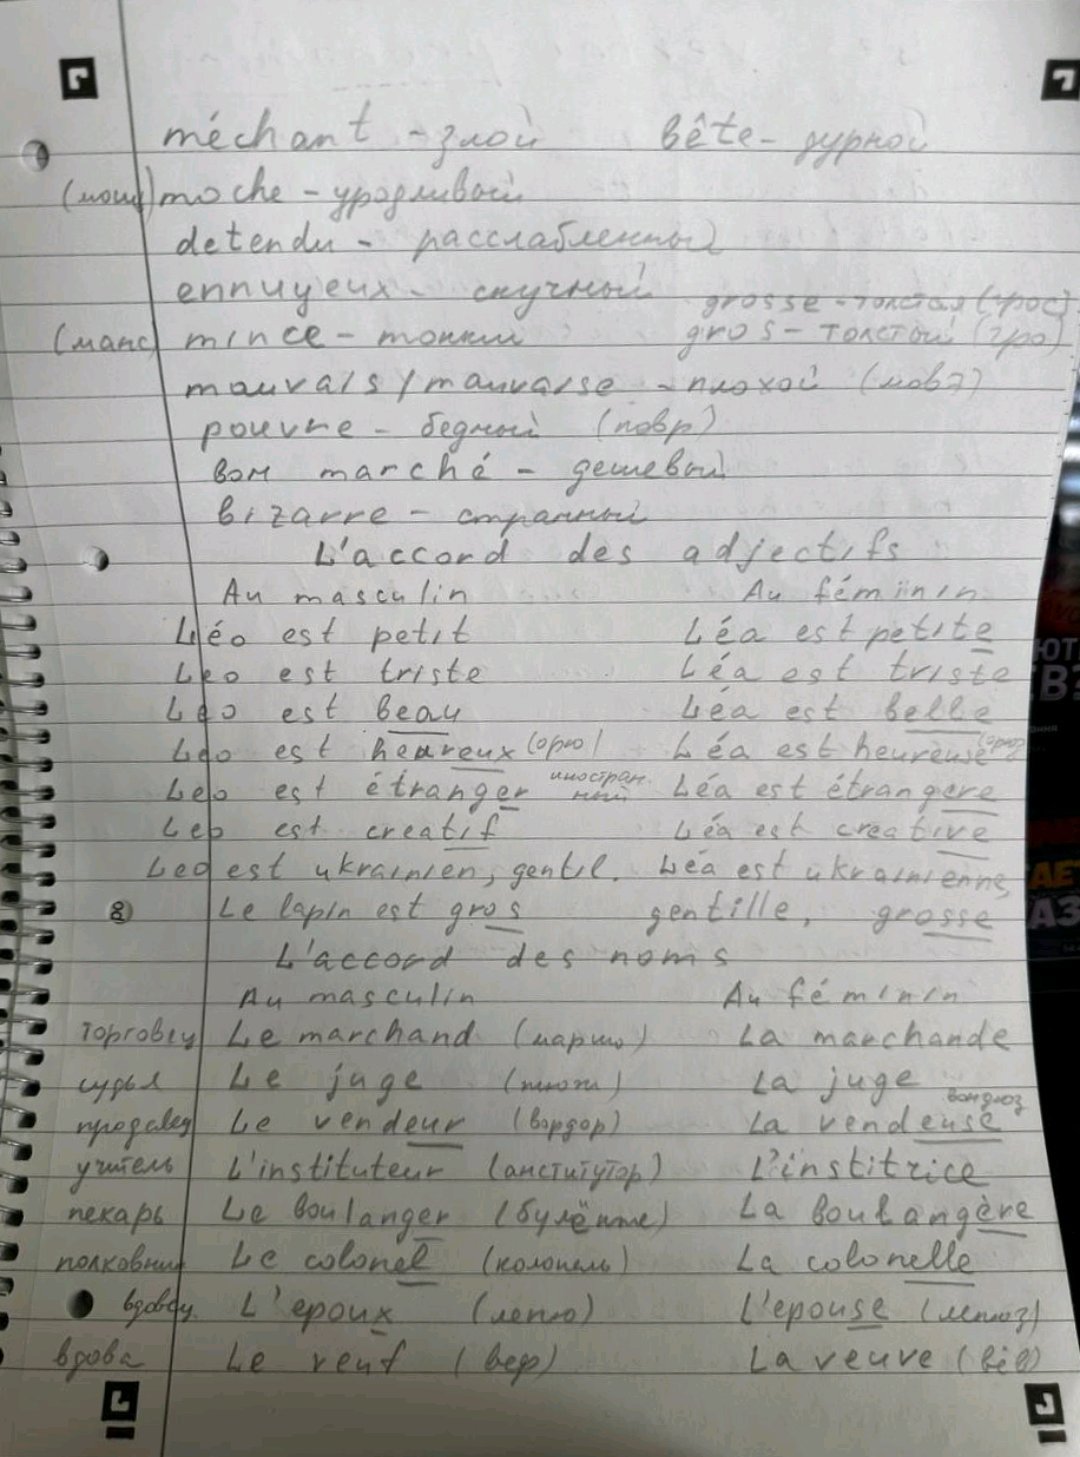 méchant - злой bête - дурной
(мош) moche - уродливый
detendu - расслабленный
ennuyeux - скучный grosse - толстая (грос)
(манс) mince - тонкий gros - толстый (гро)
mauvais / mauvaise - плохой (мовэ)
pouvre - бедный (повр)
bon marché - дешевый
bizarre - странный
L'accord des adjectifs
Au masculin Au féminin
Léo est petit Léa est petite
Leo est triste Léa est triste
Leo est beau Léa est belle
Leo est heureux (орю) Léa est heureuse (орюз)
Leo est étranger иностранный Léa est étrangere
Leo est creatif Léa est creative
Leo est ukrainien, gentil. Léa est ukrainienne,
Le lapin est gros gentille, grosse
L'accord des noms
Au masculin Au féminin
торговец Le marchand (маршо) La marchande
судья Le juge La juge
продавец Le vendeur (вордор) La vendeuse вондюз
учитель L'instituteur (анститутор) L'institrice
пекарь Le boulanger La boulangère
полковник Le colonel (колонель) La colonelle
вдовец L'epoux (лепю) L'epouse (лепюз)
вдова Le veuf (веф) La veuve (вёв)